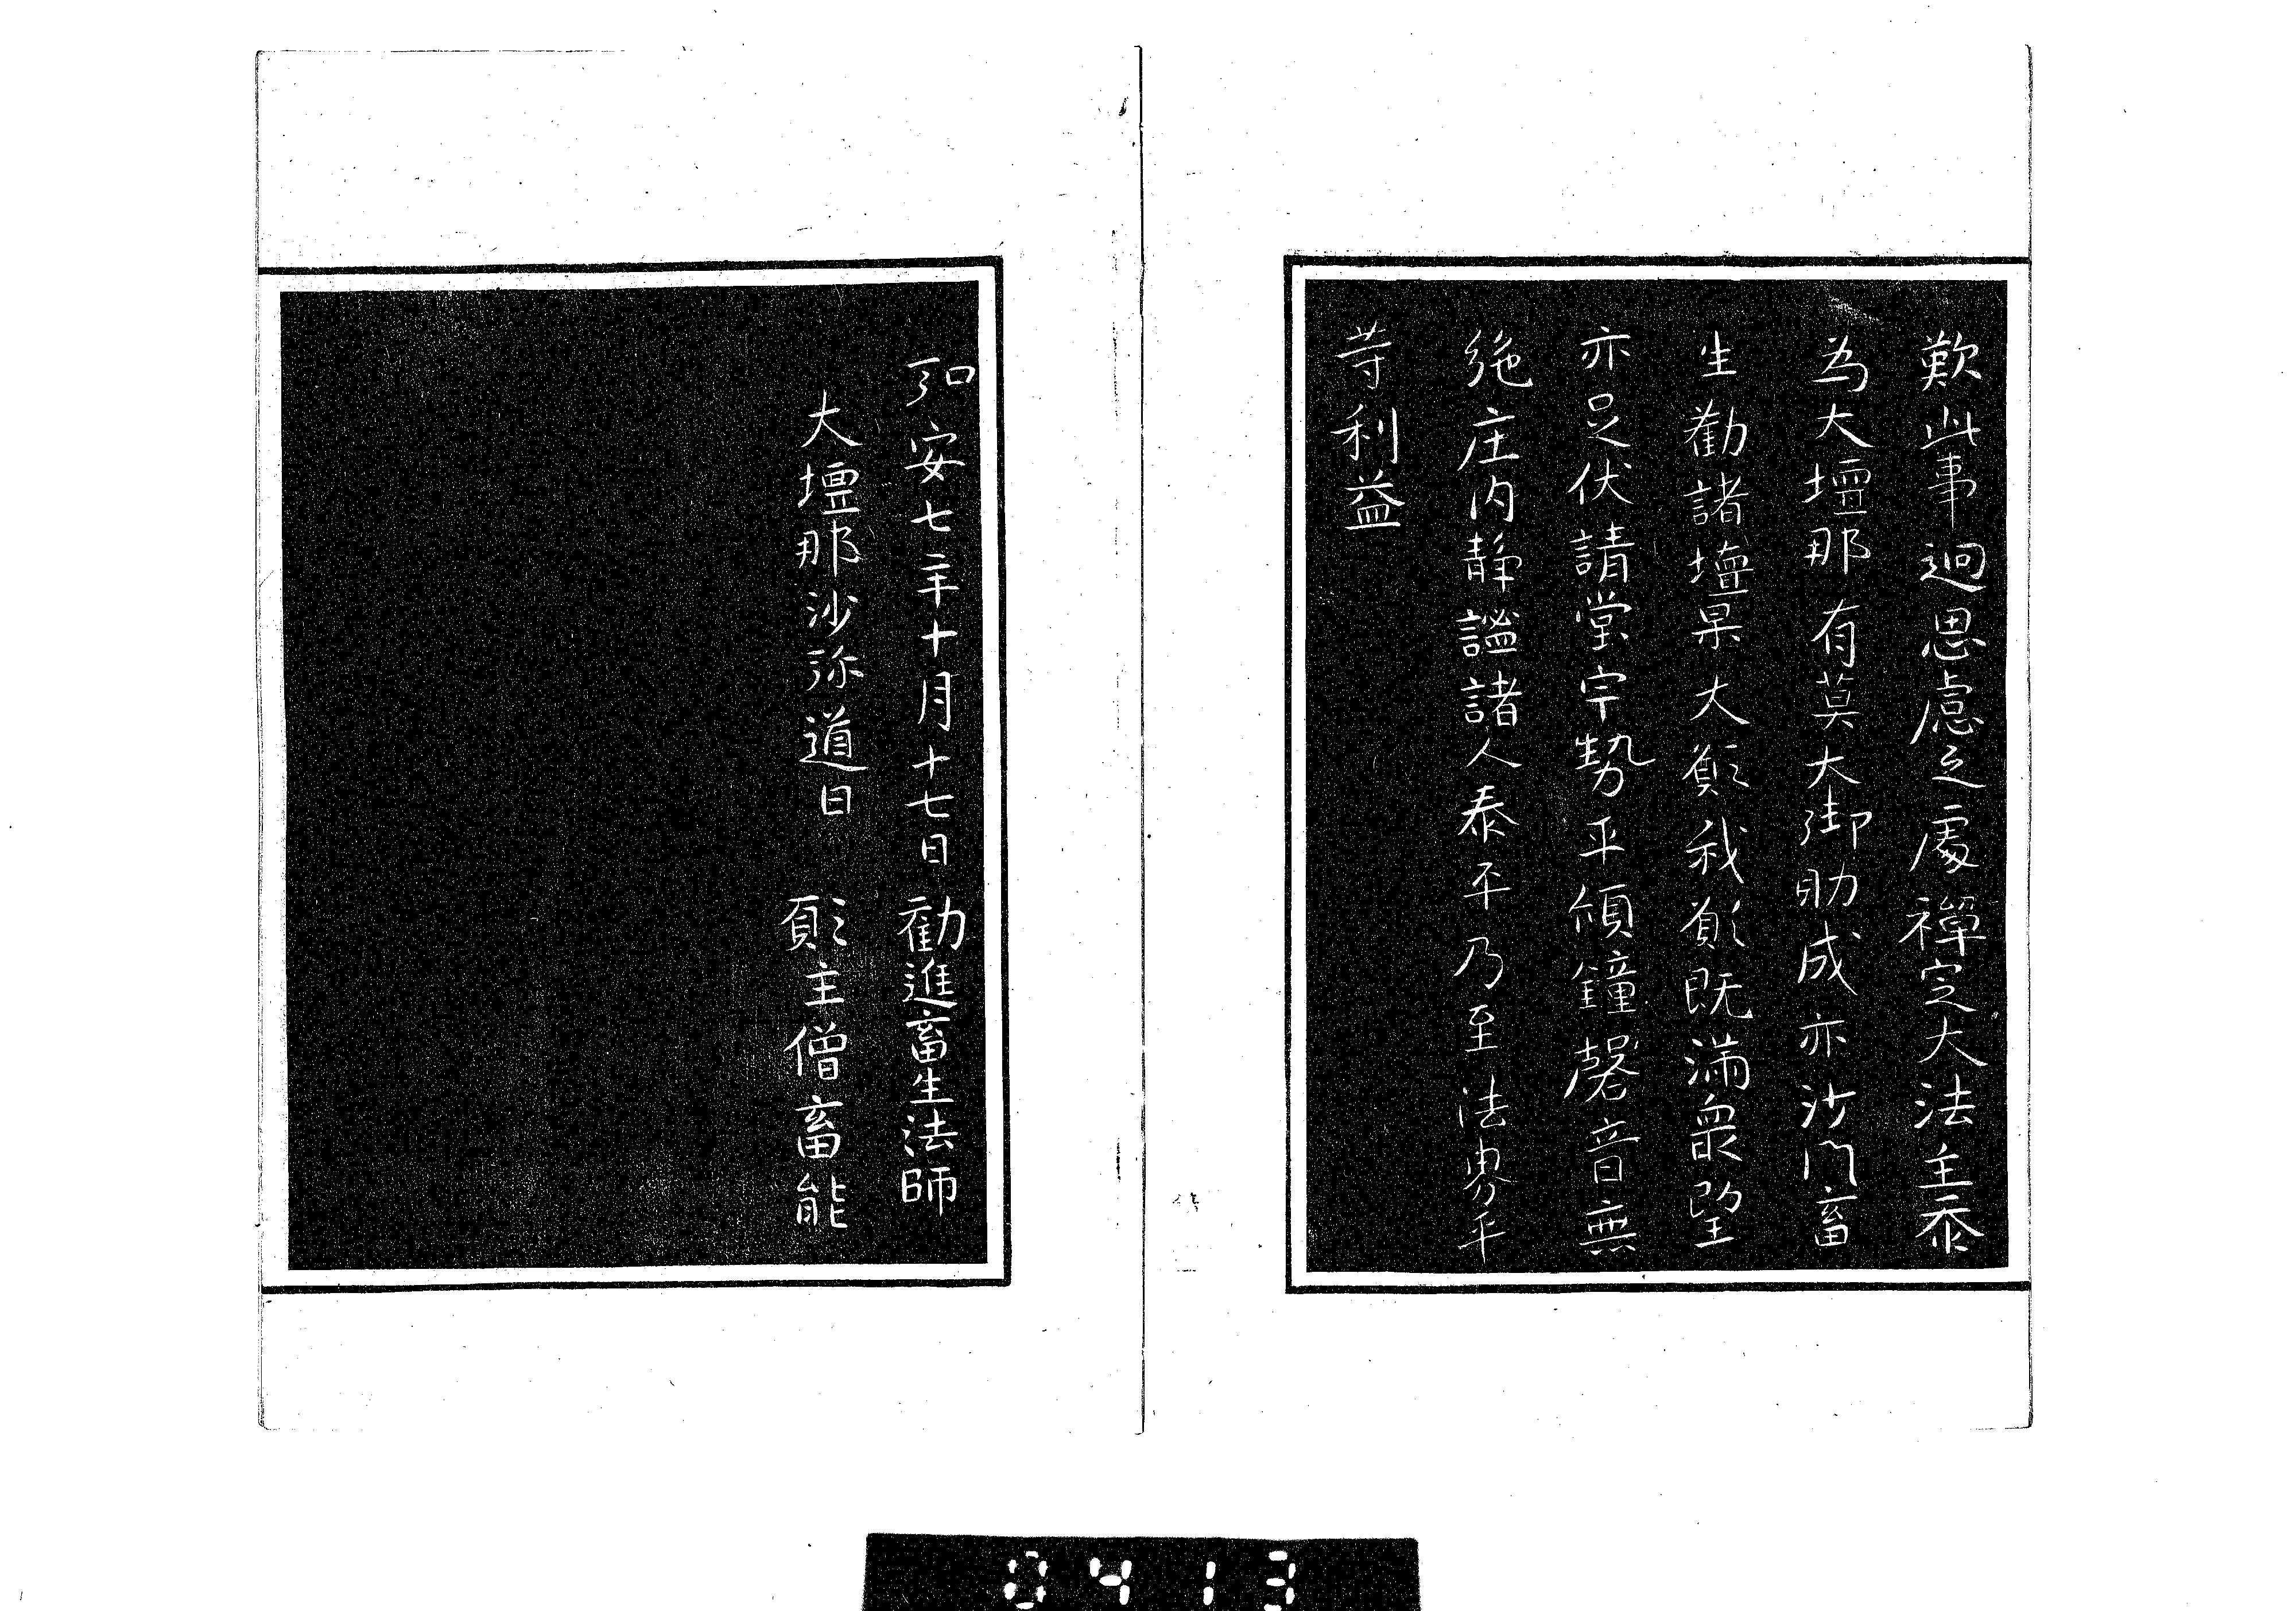 歎此事廻思慮之處禪定大法主忝
為大壇那有莫大御助成亦沙門畜
生勸諸壇果大願我願既滿衆望
亦足伏請堂宇勢平傾鐘磬音無
絶庄内靜謐諸人泰平乃至法界平
等利益
弘安七年十月十七日勸進畜生法師
大壇那沙弥道日 願主僧畜能
0413